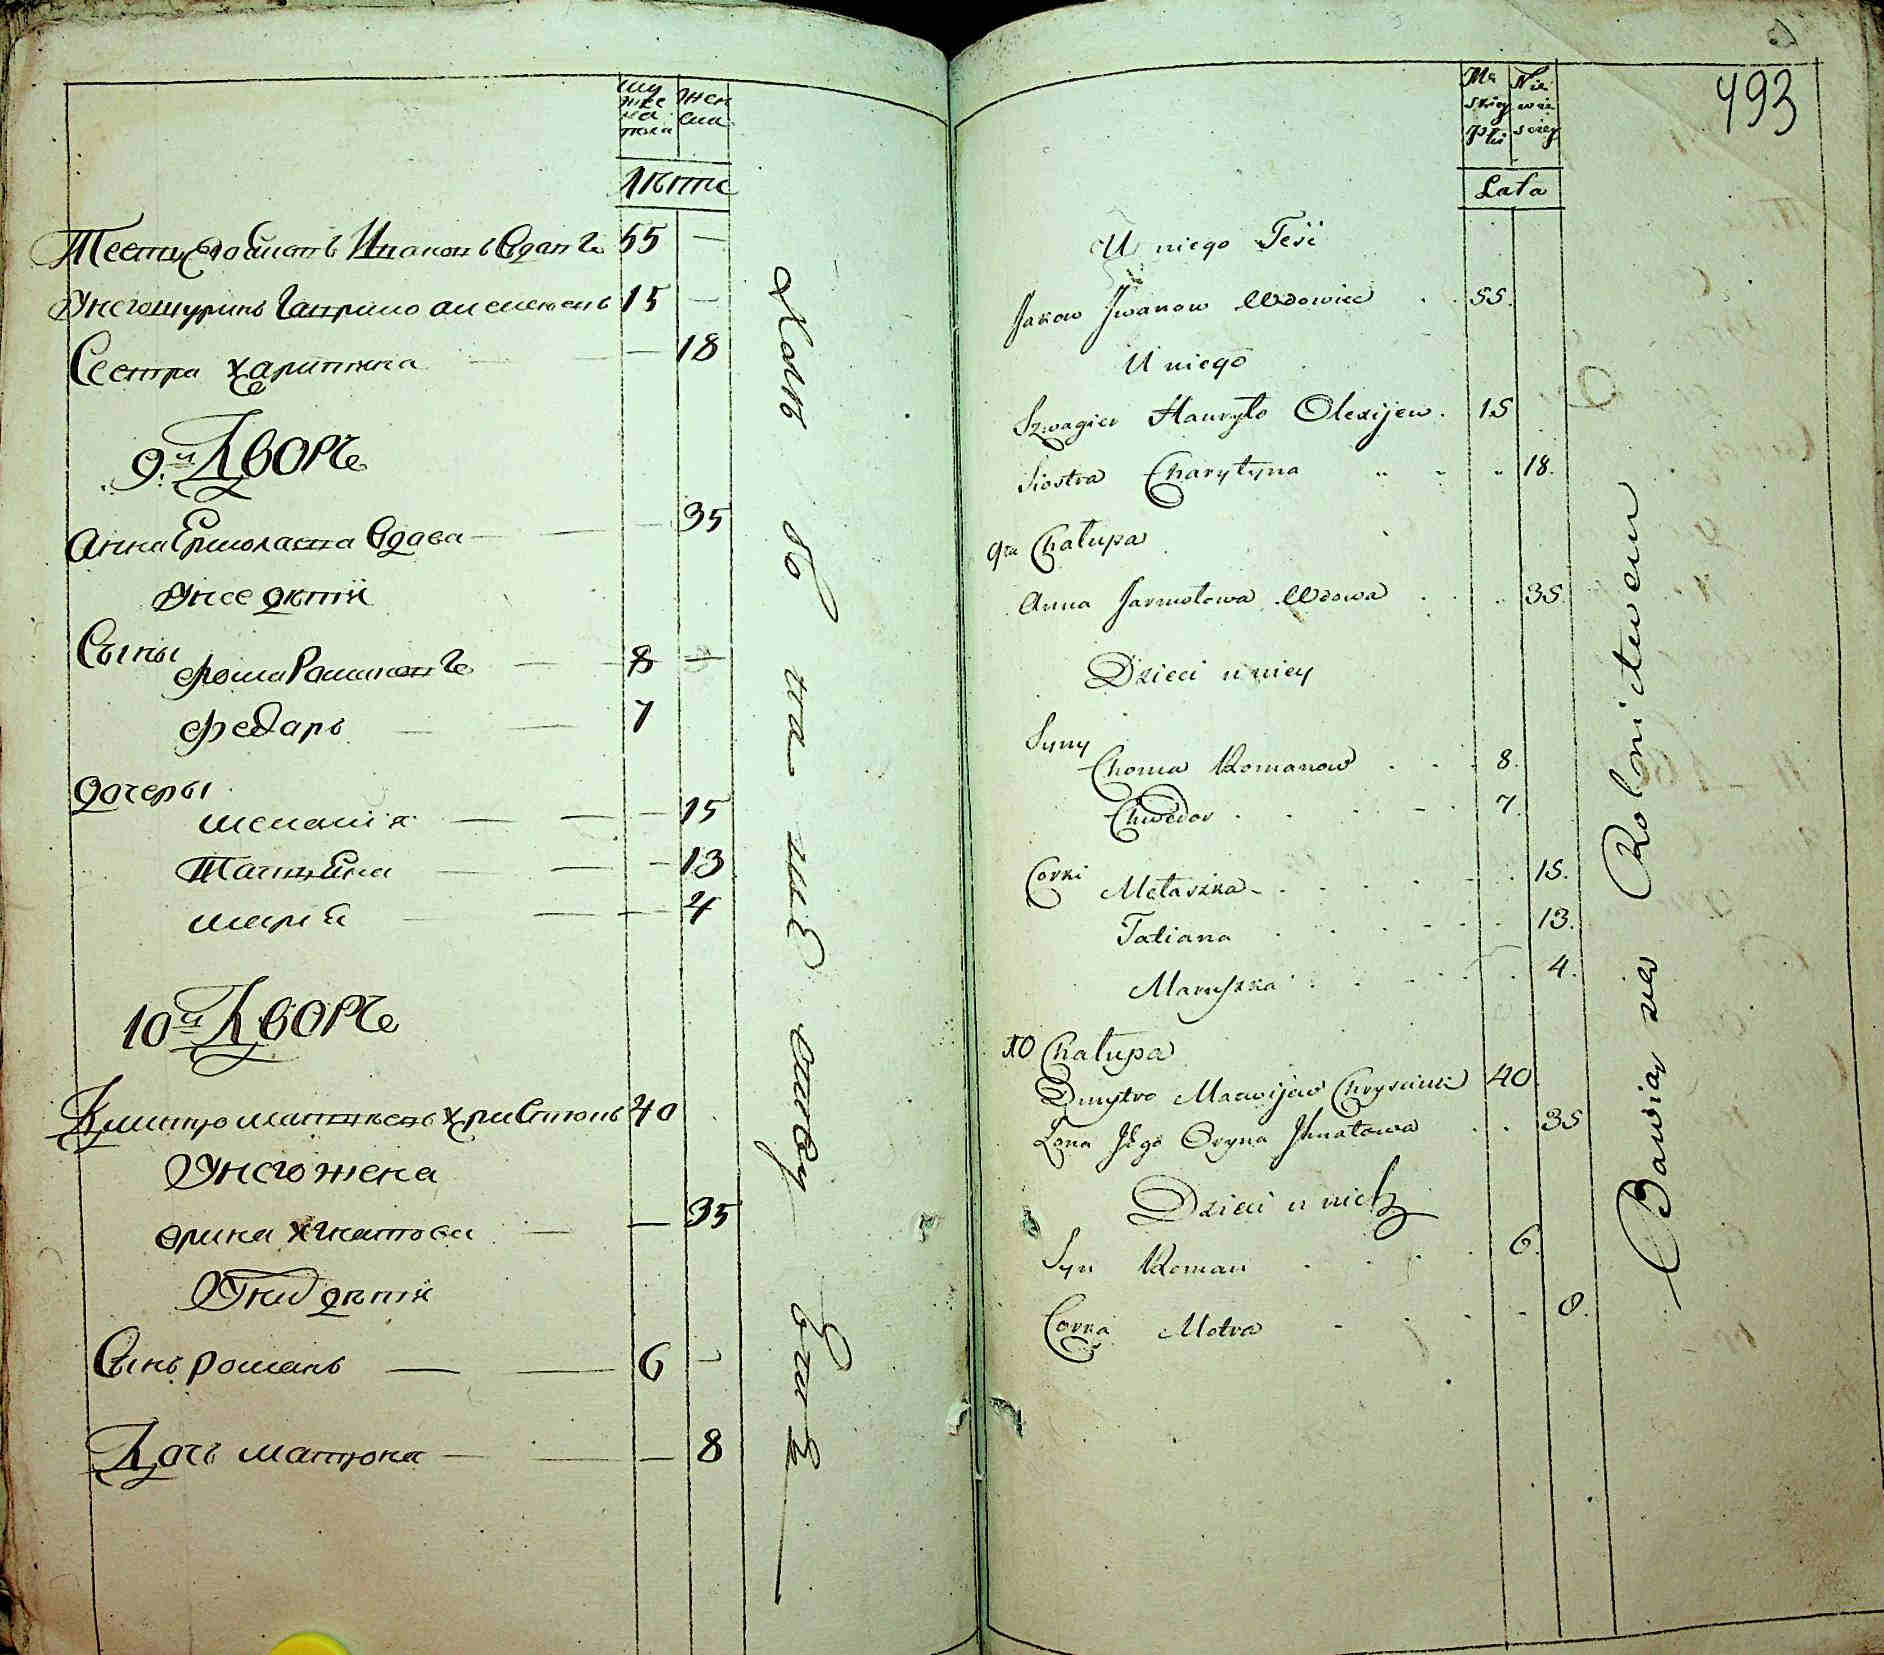 муж
ска
пола
жен
ска
Лѣта
Тесть 55 —
15 —
Сестра Харитина — 18
9й Дворъ
Анна Ермолаева Вдова — 35
У нее дѣти
Сыны
Фома Романовъ — 8 —
Федаръ — 7
Дочеры
Меланія — 15
Татіяна — 13
Марія — 4
10й Дворъ
Дмитро 40
У него жена
Орина Хнатова — 35
У них дѣти
Сынъ Романъ — 6 —
Дочь Матрона — 8
493
Męskiey
Płci
Niewieściey
Lata
U niego Teść
Jakow Jwanow Wdowiec . . 55.
U niego
Szwagier Hawryło Olexijew . 15
Siostra Charytyna 18.
9ta Chałupa
Anna Jarmołowa Wdowa . . 35.
Dzieci u niey
Syny
Choma Romanow . . . 8.
Chwedor . . . 7.
Corki
Mełaszka . . . 15.
Tatiana . . . 13.
Maruszka . . . 4.
10 Chałupa
Dmytro Macwijew 40
Żona Jego Oryna Hnatowa . . 35
Dzieci u nich
Syn Roman . . . 6.
Corka Motra . . . 8.
Bawią się Rolnictwem